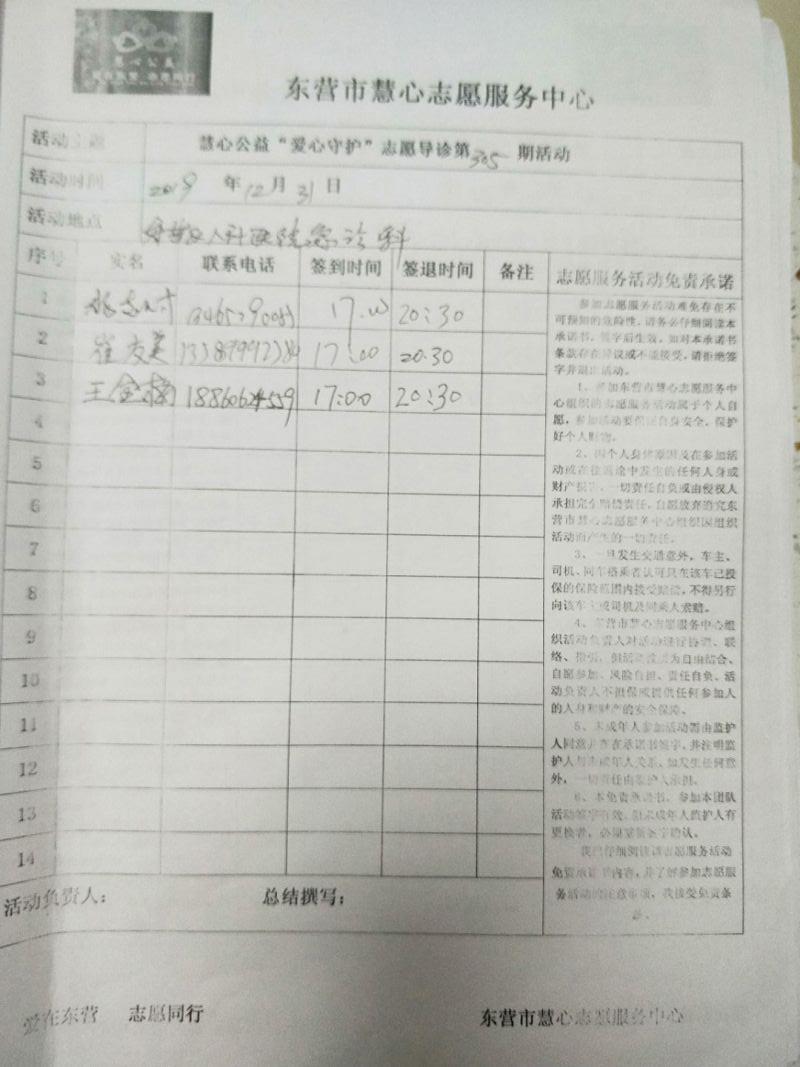 东营市慧心志愿服务中心
活动主题 慧心公益“爱心守护”志愿导诊第305期活动
活动时间 2019年12月31日
活动地点 人民医院急诊科
序号 实名 联系电话 签到时间 签退时间 备注 志愿服务活动免责承诺
1 17:00 20:30
2 崔友美 17:00 20.30
3 王金梅 17:00 20:30
4
5
6
7
8
9
10
11
12
13
14
参加志愿服务活动难免存在不
可预知的危险性，请务必仔细阅读本
承诺书，签字后生效，如对本承诺书
条款存在异议或不能接受，请拒绝签
字并退出活动。
1、参加东营市慧心志愿服务中
心组织的志愿服务活动属于个人自
愿，参加活动要保证自身安全，保护
好个人财物。
2、因个人身体原因及在参加活
动或在往返途中发生的任何人身或
财产损害，一切责任自负或由侵权人
承担完全赔偿责任，自愿放弃追究东
营市慧心志愿服务中心组织因组织
活动而产生的一切责任。
3、一旦发生交通意外，车主、
司机、同车搭乘者认可只在该车已投
保的保险范围内接受赔偿，不得另行
向该车主或司机及同乘人索赔。
4、东营市慧心志愿服务中心组
织活动负责人对活动进行协调、联
络、指引，但活动性质为自由结合、
自愿参加、风险自担、责任自负。活
动负责人不担保或提供任何参加人
的人身和财产的安全保障。
5、未成年人参加活动需由监护
人同意并在承诺书签字，并注明监
护人与未成年人关系，如发生任何意
外，一切责任由监护人承担。
6、本免责承诺书，参加本团队
活动签字有效，如未成年人监护人有
更换者，必须重新签字确认。
我已仔细阅读该志愿服务活动
免责承诺书内容，并了解参加志愿服
务活动的注意事项，我接受免责条
款。
活动负责人： 总结撰写：
爱在东营 志愿同行 东营市慧心志愿服务中心